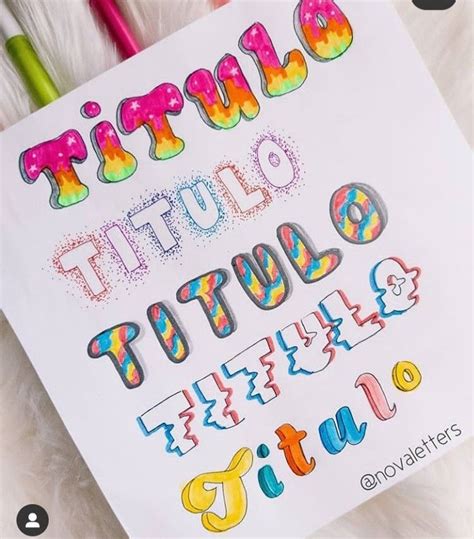 TiTULO
TITULO
TITULO
TITULO
Titulo
@novaletters